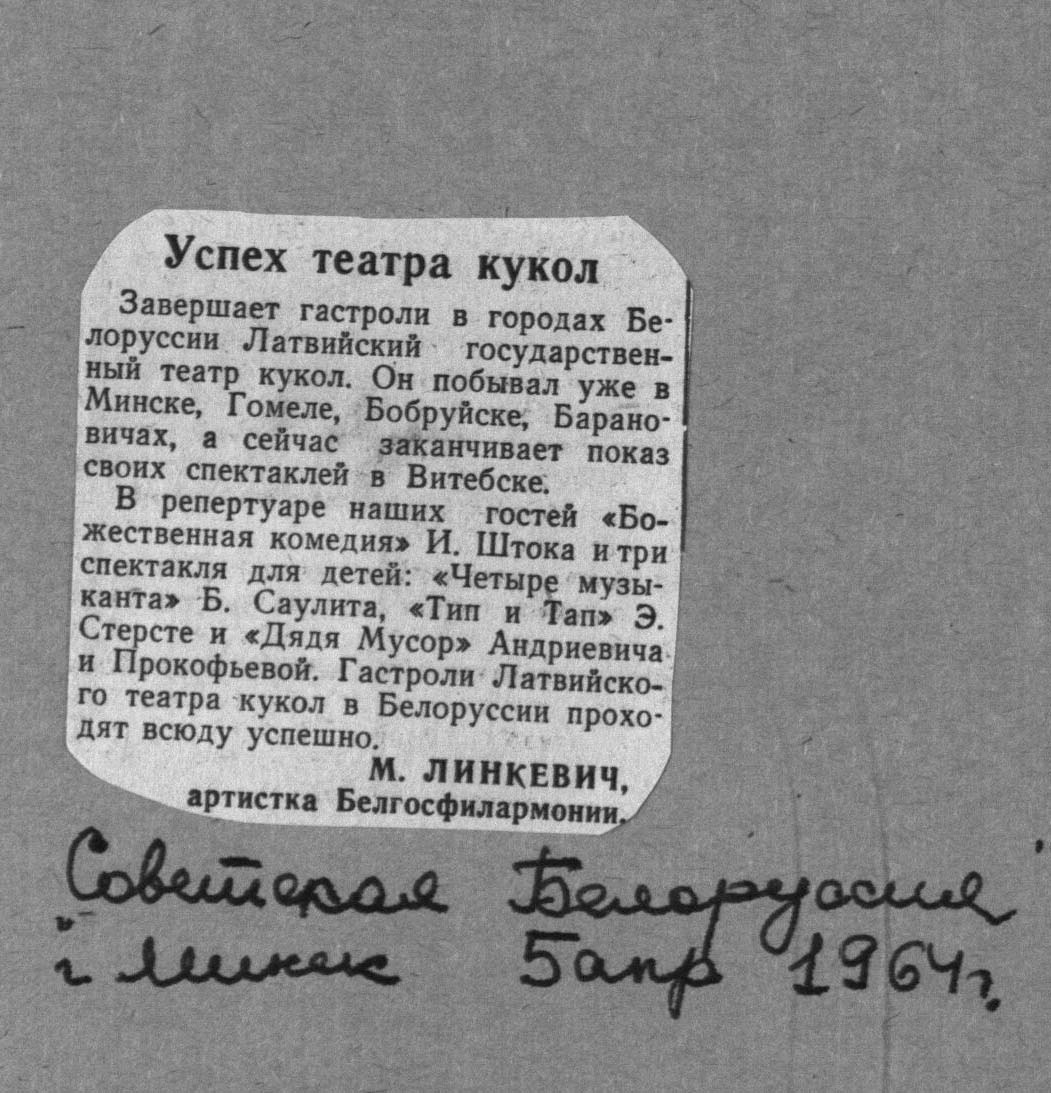 Успех театра кукол
Завершает гастроли в городах Бе-
лоруссии Латвийский государствен-
ный театр кукол. Он побывал уже в
Минске, Гомеле, Бобруйске, Барано-
вичах, а сейчас заканчивает показ
своих спектаклей в Витебске.
В репертуаре наших гостей «Бо-
жественная комедия» И. Штока и три
спектакля для детей: «Четыре музы-
канта» Б. Саулита, «Тип и Тап» Э.
Стерсте и «Дядя Мусор» Андриевича
и Прокофьевой. Гастроли Латвийско-
го театра кукол в Белоруссии прохо-
дят всюду успешно.
М. ЛИНКЕВИЧ,
артистка Белгосфилармонии.
Советская Белоруссия
г Минск 5 апр 1964 г.